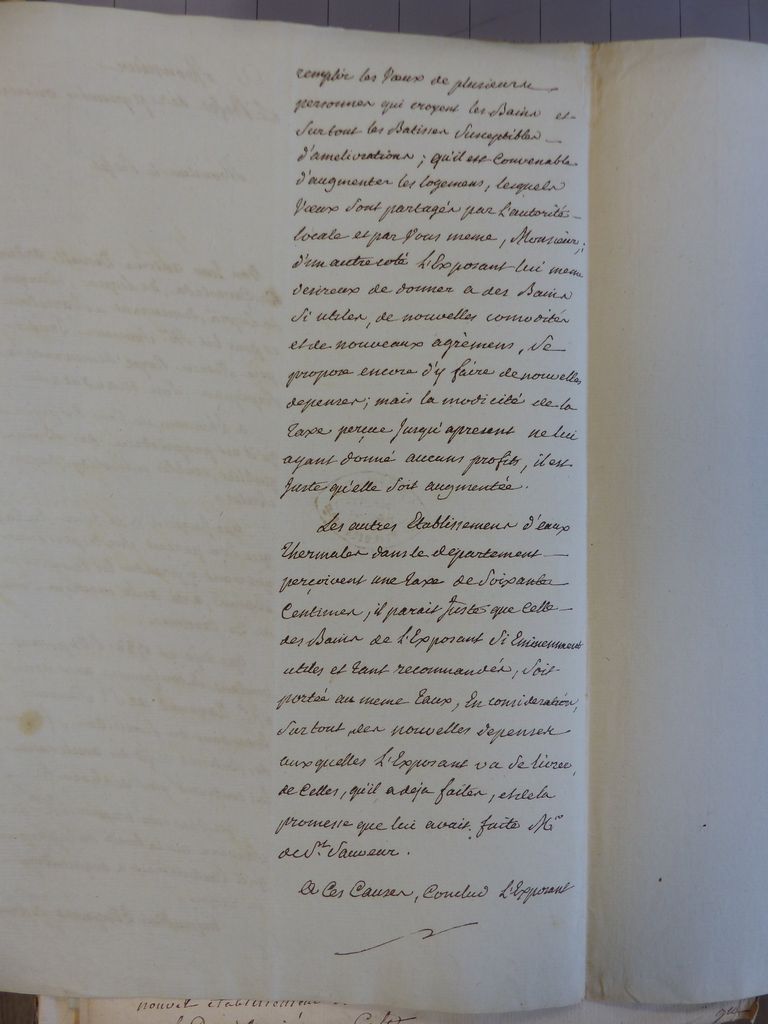 remplir les Vœux de plusieurs
personnes qui croyent les Bains et
surtout les Batisses susceptibles
d'ameliorations; qu'il est Convenable
d'augmenter les logemens, lesquels
Vœux sont partagés par L'autorité
locale et par Vous meme, Monsieur;
d'un autre coté L'Exposant lui meme
desireux de donner a des Bains
si utiles, de nouvelles comodités
et de nouveaux agrèmens, se
propose encore d'y faire de nouvelles
depenses; mais la modicité de la
Taxe perçue jusqu'apresent ne lui
ayant donné aucuns profits, il est
juste qu'elle soit augmentée.
Les autres Etablissemens d'eaux
Thermales dans le departement
perçoivent une Taxe de soixante
Centimes, il parait juste que Celle
des Bains de L'Exposant si Eminemment
utiles et tant recommandés, soit
portée au meme Taux, En consideration,
surtout des nouvelles depenses
auxquelles L'Exposant va se livrer,
de Celles, qu'il a deja faites, et de la
promesse que lui avait faite Mr
de St. Sauveur.
A Ces Causes, Conclud L'Exposant
nouvel etablissement